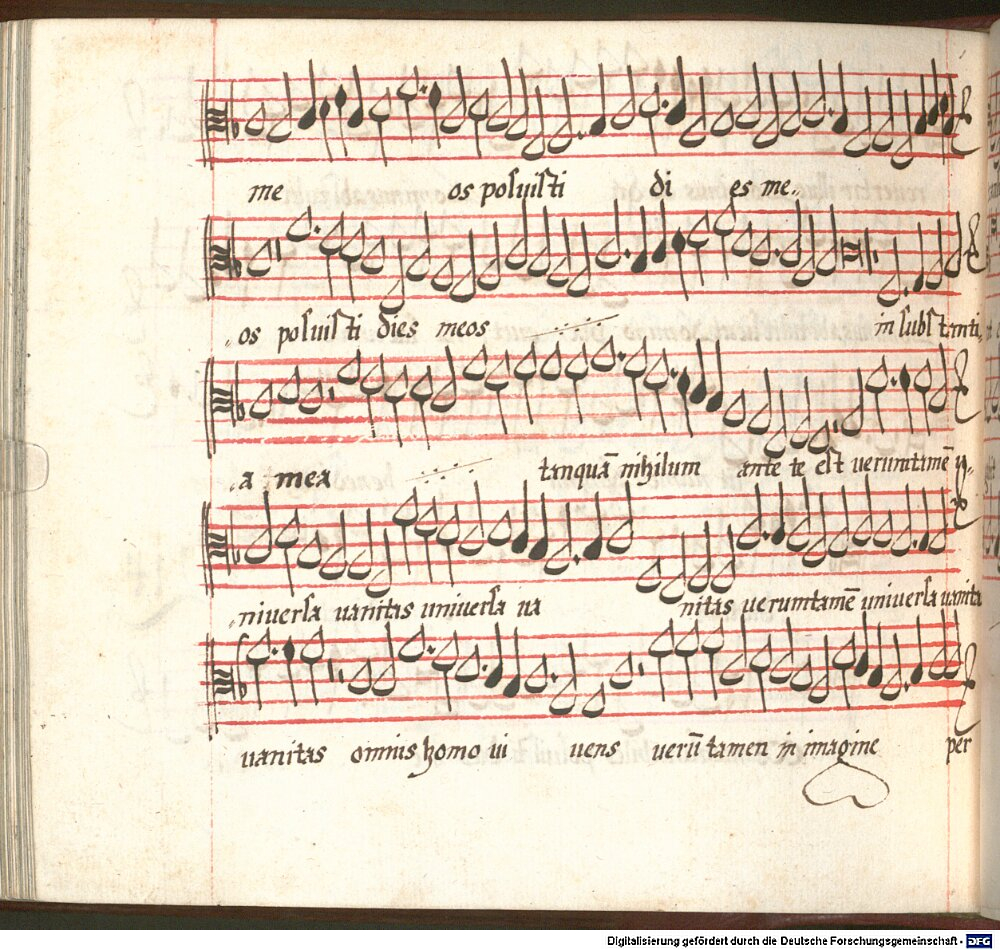 me os posuisti di es me„
„os posuisti dies meos in substanti„
„a mea tanquā nihilum ante te est verumtamē u„
„niversa vanitas universa va nitas verumtamē universa vanita
vanitas omnis homo vi vens verū tamen in imagine per
Digitalisierung gefördert durch die Deutsche Forschungsgemeinschaft - DFG